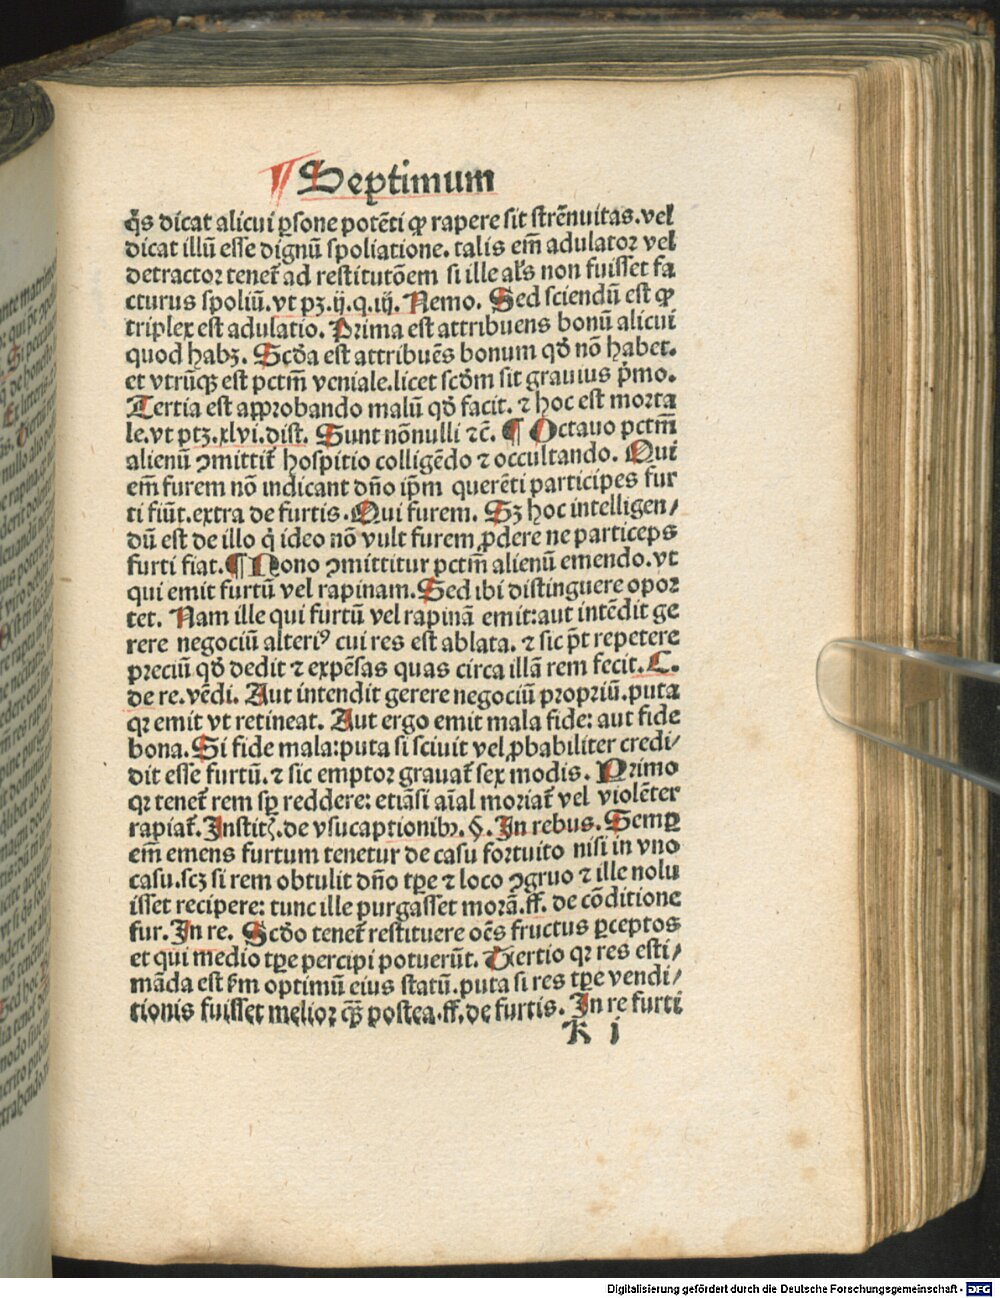 ¶ Septimum
q̇s dicat alicui ꝑsone potēti ꝙ rapere sit strēnuitas.vel
dicat illū esse dignū spoliatione. talis em̄ adulator vel
detractor teneƭ ad restitutōem si ille al's non fuisset fa
cturus spoliū.vt pꝫ.ij.q.iij. Nemo. Sed sciendū est ꝙ
triplex est adulatio. Prima est attribuens bonū alicui
quod habꝫ. Scḋa est attribuēs bonum qḋ nō habet.
et vtrūqꝫ est pctm̄ veniale.licet scḋm sit grauius p̄mo.
Tertia est approbando malū qḋ facit. ⁊ hoc est morta
le.vt ptꝫ.xlvi.dist. Sunt nōnulli ⁊c̄. ¶ Octauo pctm̄
alienū ꝯmittit̄ hospitio colligēdo ⁊ occultando. Qui
em̄ furem nō indicant dn̄o ip̄m querēti participes fur
ti fiūt.extra de furtis. Qui furem. Sꝫ hoc intelligen/
dū est de illo q̇ ideo nō vult furem ꝓdere ne particeps
furti fiat. ¶ Nono ꝯmittitur pctm̄ alienū emendo.vt
qui emit furtū vel rapinam. Sed ibi distinguere opor
tet. Nam ille qui furtū vel rapinā emit:aut intēdit ge
rere negociū alteriꝰ cui res est ablata. ⁊ sic p̄t repetere
preciū qḋ dedit ⁊ expēsas quas circa illā rem fecit. C.
de re.vēdi. Aut intendit gerere negociū propriū.puta
qꝛ emit vt retineat. Aut ergo emit mala fide: aut fide
bona. Si fide mala:puta si sciuit vel ꝓbabiliter credi/
dit esse furtū. ⁊ sic emptor grauat̄ sex modis. Primo
qꝛ tenet̄ rem sꝑ reddere: etiāsi aīal moriat̄ vel violēter
rapiat̄. Institꝭ.de vsucaptionibꝫ. §. In rebus. Semꝑ
em̄ emens furtum tenetur de casu fortuito nisi in vno
casu.scꝫ si rem obtulit dn̄o tꝑe ⁊ loco ꝯgruo ⁊ ille nolu
isset recipere: tunc ille purgasset morā.ff. de cōditione
fur. In re. Scḋo tenet̄ restituere oēs fructus ꝑceptos
et qui medio tꝑe percipi potuerūt. Tertio qꝛ res esti/
māda est ẜm optimū eius statū.puta si res tꝑe vendi/
tionis fuisset melior qꝫ̄ postea.ff.de furtis. In re furti
k i
Digitalisierung gefördert durch die Deutsche Forschungsgemeinschaft - DFG